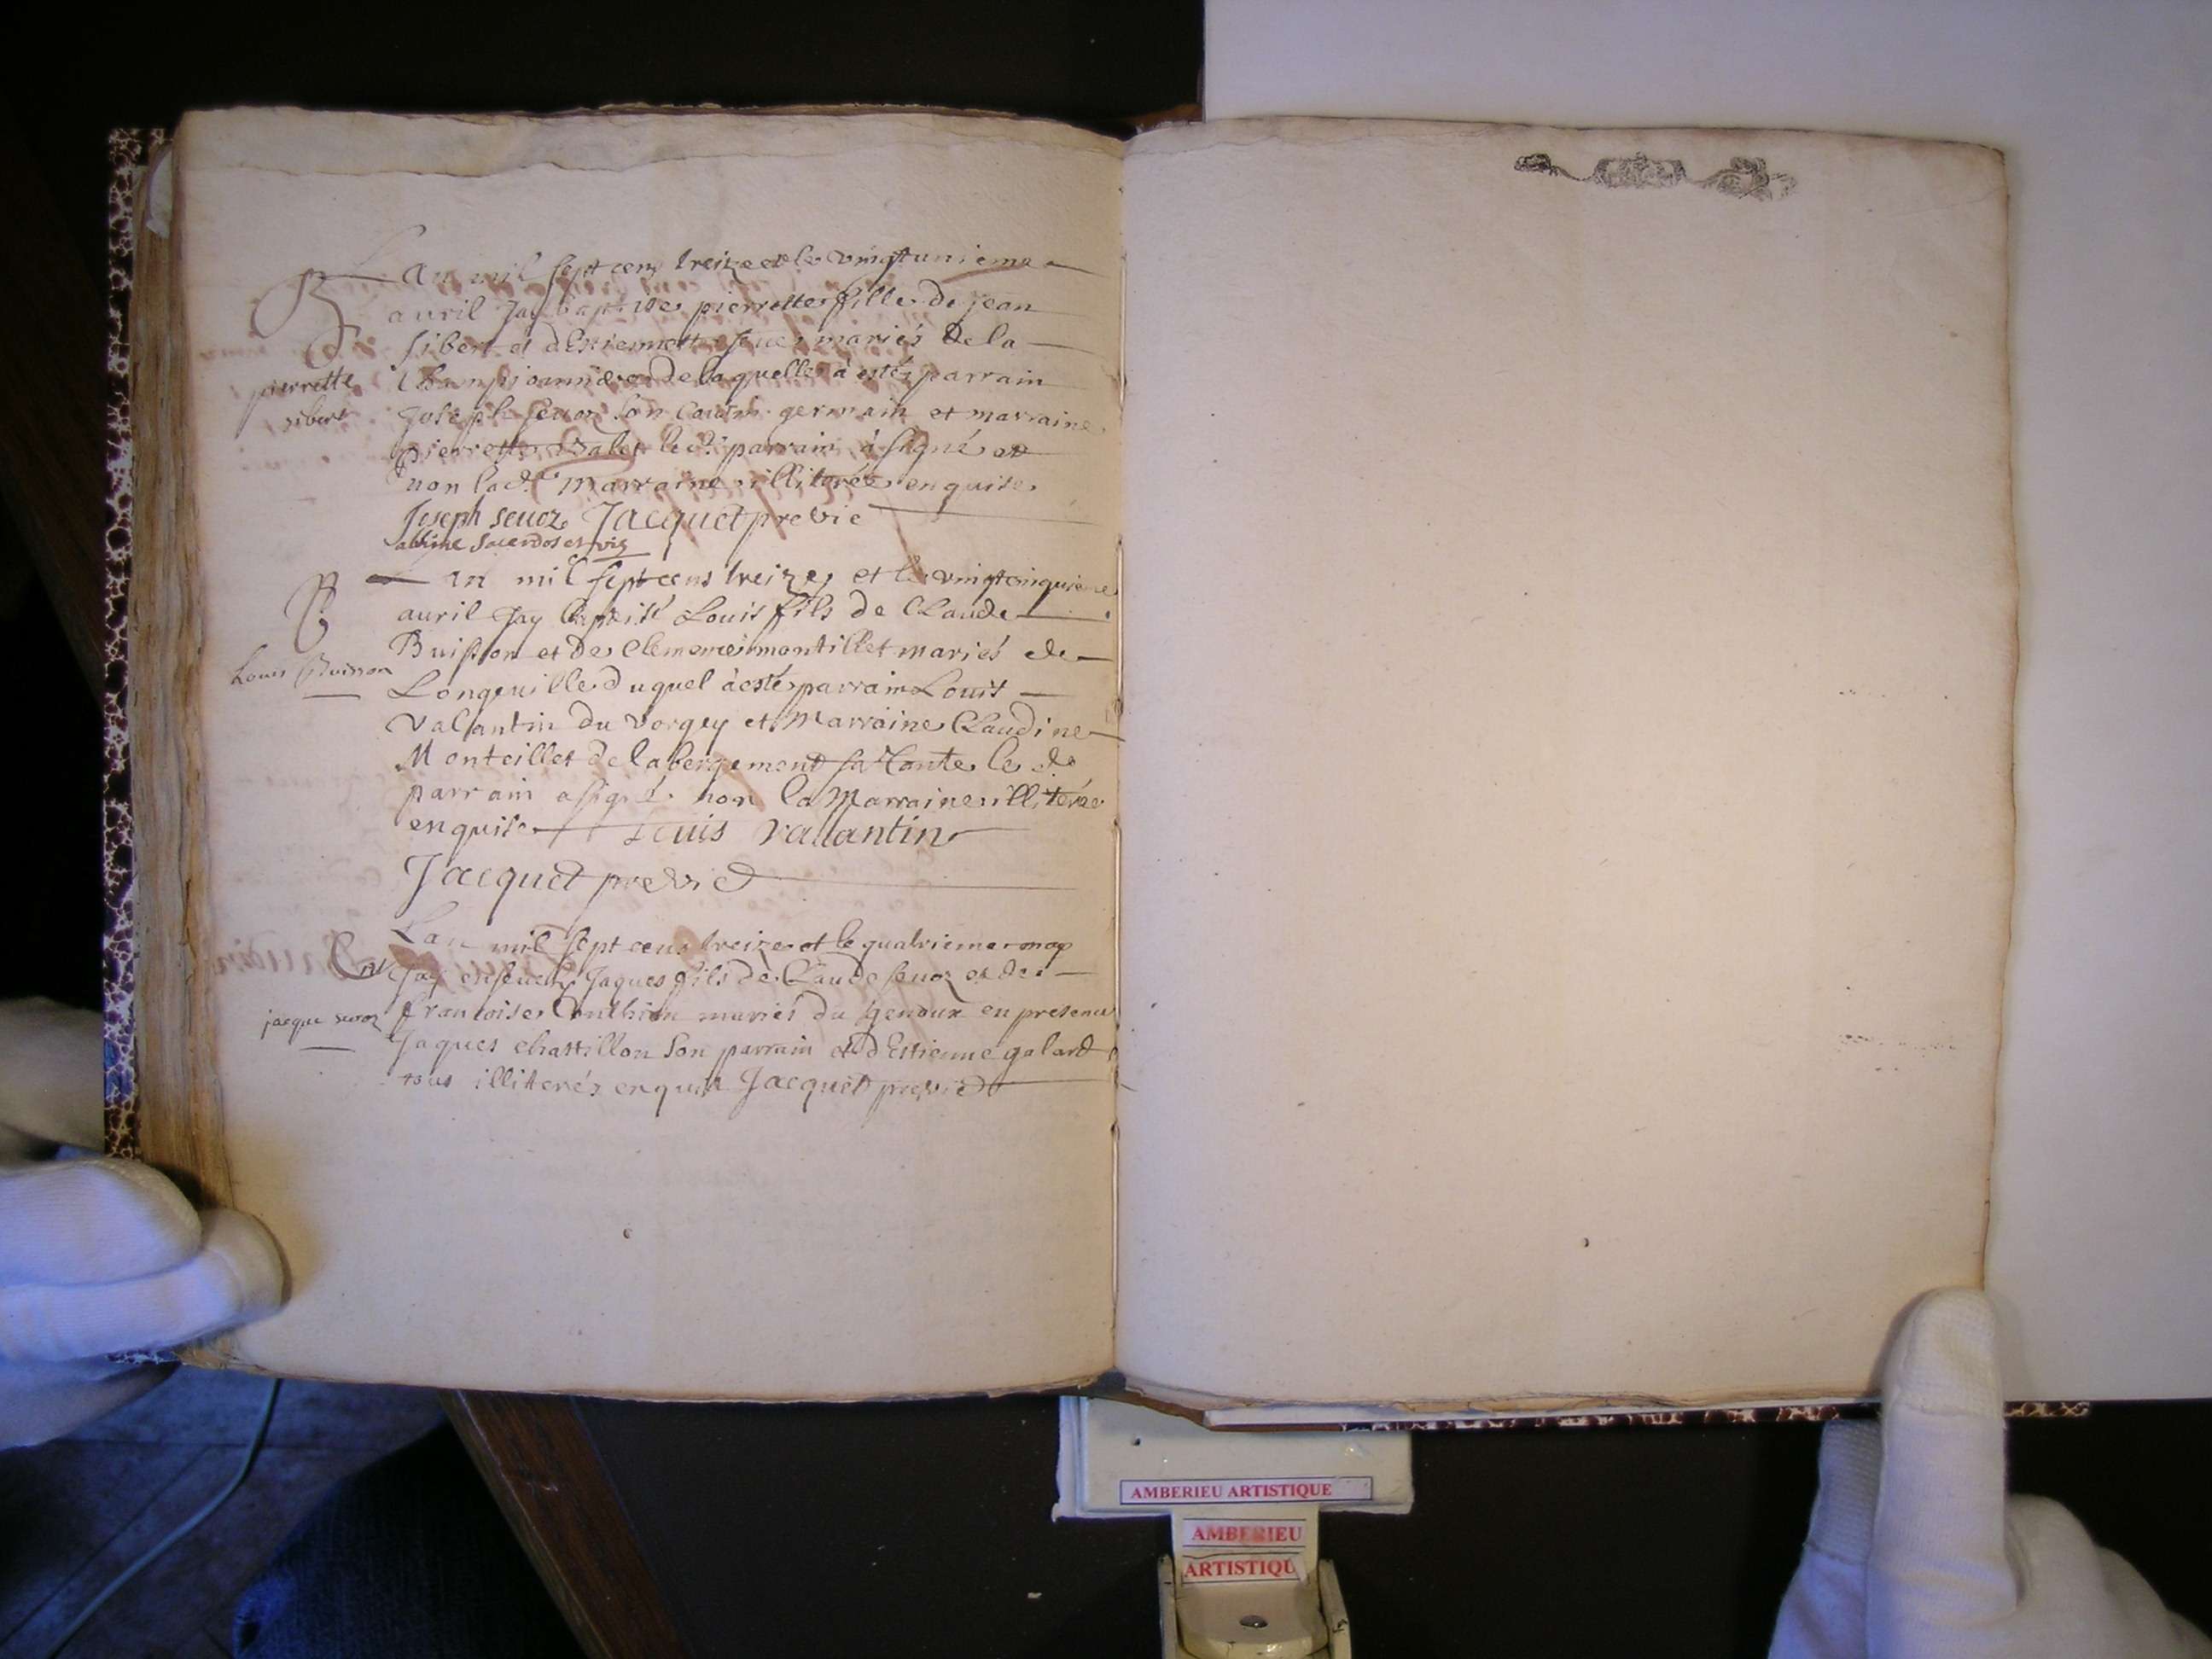 B
Lan mil sept cens treize et le vingtunieme
avril Jay baptise pierrette fille de Jean
sibert et dEstiennette seuoz mariés de la
de laquelle à esté parrain
pierrette
sibert
Joseph seuoz son Cousin germain et marraine
pierrette le d. parrain à signé et
non lad.e Marraine illiterée enquise
Joseph seuoz Jacquet p.re vic
sacerdos et vig
B
Lan mil sept cens treize et le vingtcinquieme
auril Jay baptisé Louis fils de Claude
Louis Buisson
Buisson et de Clemence montillet mariés de
Longeuille duquel à esté parrain Louis
Vallantin du Vorgey et Marraine Claudine
Monteillet de labergement sa Tante le d.
parrain a signé non la Marraine illiterée
enquise Louis vallantin
Jacquet p.re vic
Lan mil sept cens treize et le quatrieme may
Ent
Jay enseueli Jaques fils de Claude seuoz et de
jacque seuoz
francoise mariés du genoux en presence
Jaques chastillon Son parrain et dEstienne galard
tous illiterés enquis Jacquet p.re vic
AMBERIEU ARTISTIQUE
AMBERIEU
ARTISTIQU